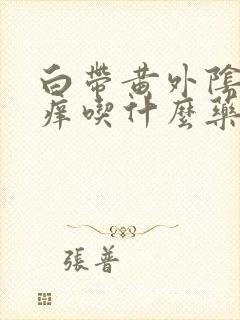 白帶黃外陰
癢喫什麼藥
張普